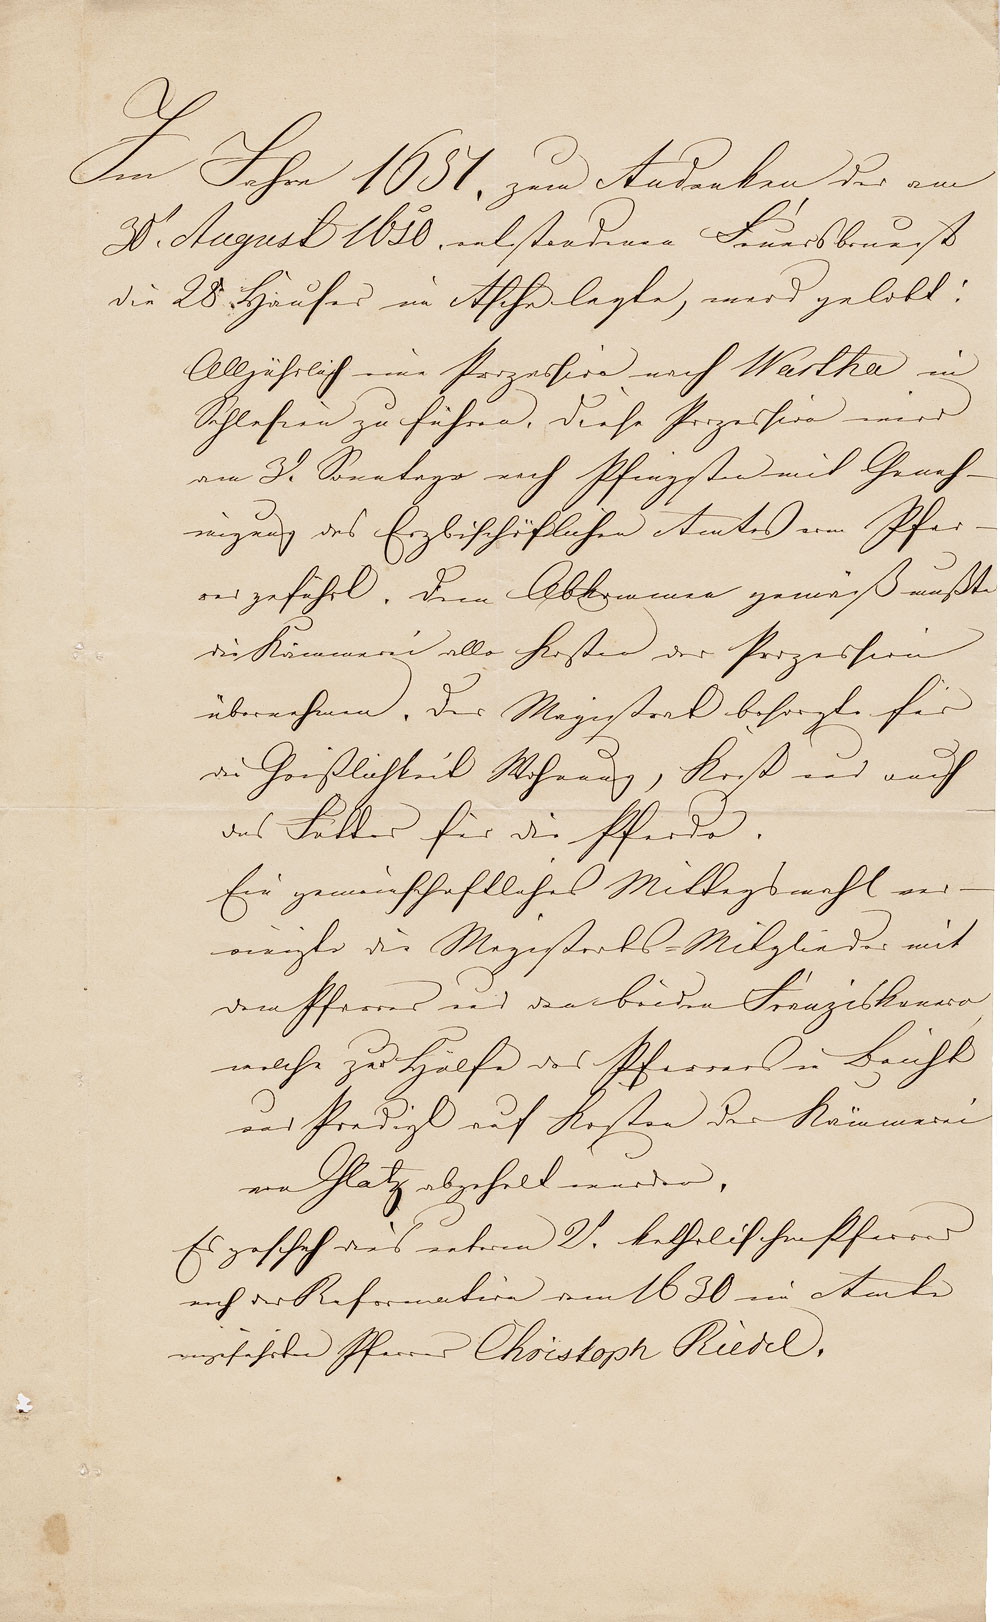 Im Jahre 1651, zum Andenken der am
30t. August 1650 entstandenen Feuersbrunst
die 28 Häuser in Asche legte, ward gelobt:
Alljährlich eine Prozession nach Wartha in
Schlesien zu führen. Diese Prozession wird
am 3t. Sonntage nach Pfingsten mit Geneh-
migung des Erzbischöflichen Amtes vom Pfar-
rer geführt. Dem Abkommen gemäß mußte
die Kämmerei alle Kosten der Prozession
übernehmen. Der Magistrat besorgte für
die Geistlichkeit Wohnung, Kost und auch
das Futter für die Pferde.
Ein gemeinschaftliches Mittagsmahl ver-
einigte die Magistrats-Mitglieder mit
dem Pfarrer und den beiden Franziskanern,
welche zur Hülfe des Pfarrers in Beicht
und Predigt auf Kosten der Kämmerei
von Glatz abgeholt wurden.
Es geschah dies unterm 2t. katholischen Pfarrer
nach der Reformation dem 1630 im Amte
eingeführten Pfarrer Christoph Riedel.